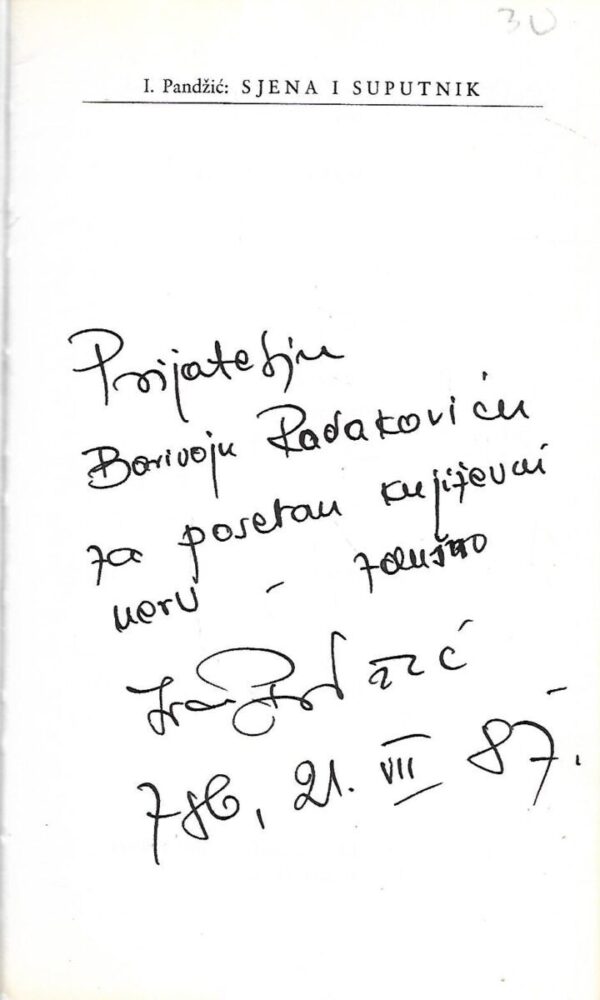 30
I. Pandžić: SJENA I SUPUTNIK
Prijatelju
Borivoju Radakoviću
za posetan književni
nerv - zdušno
Ivan Pandžić
Zgb, 21. VII 87.